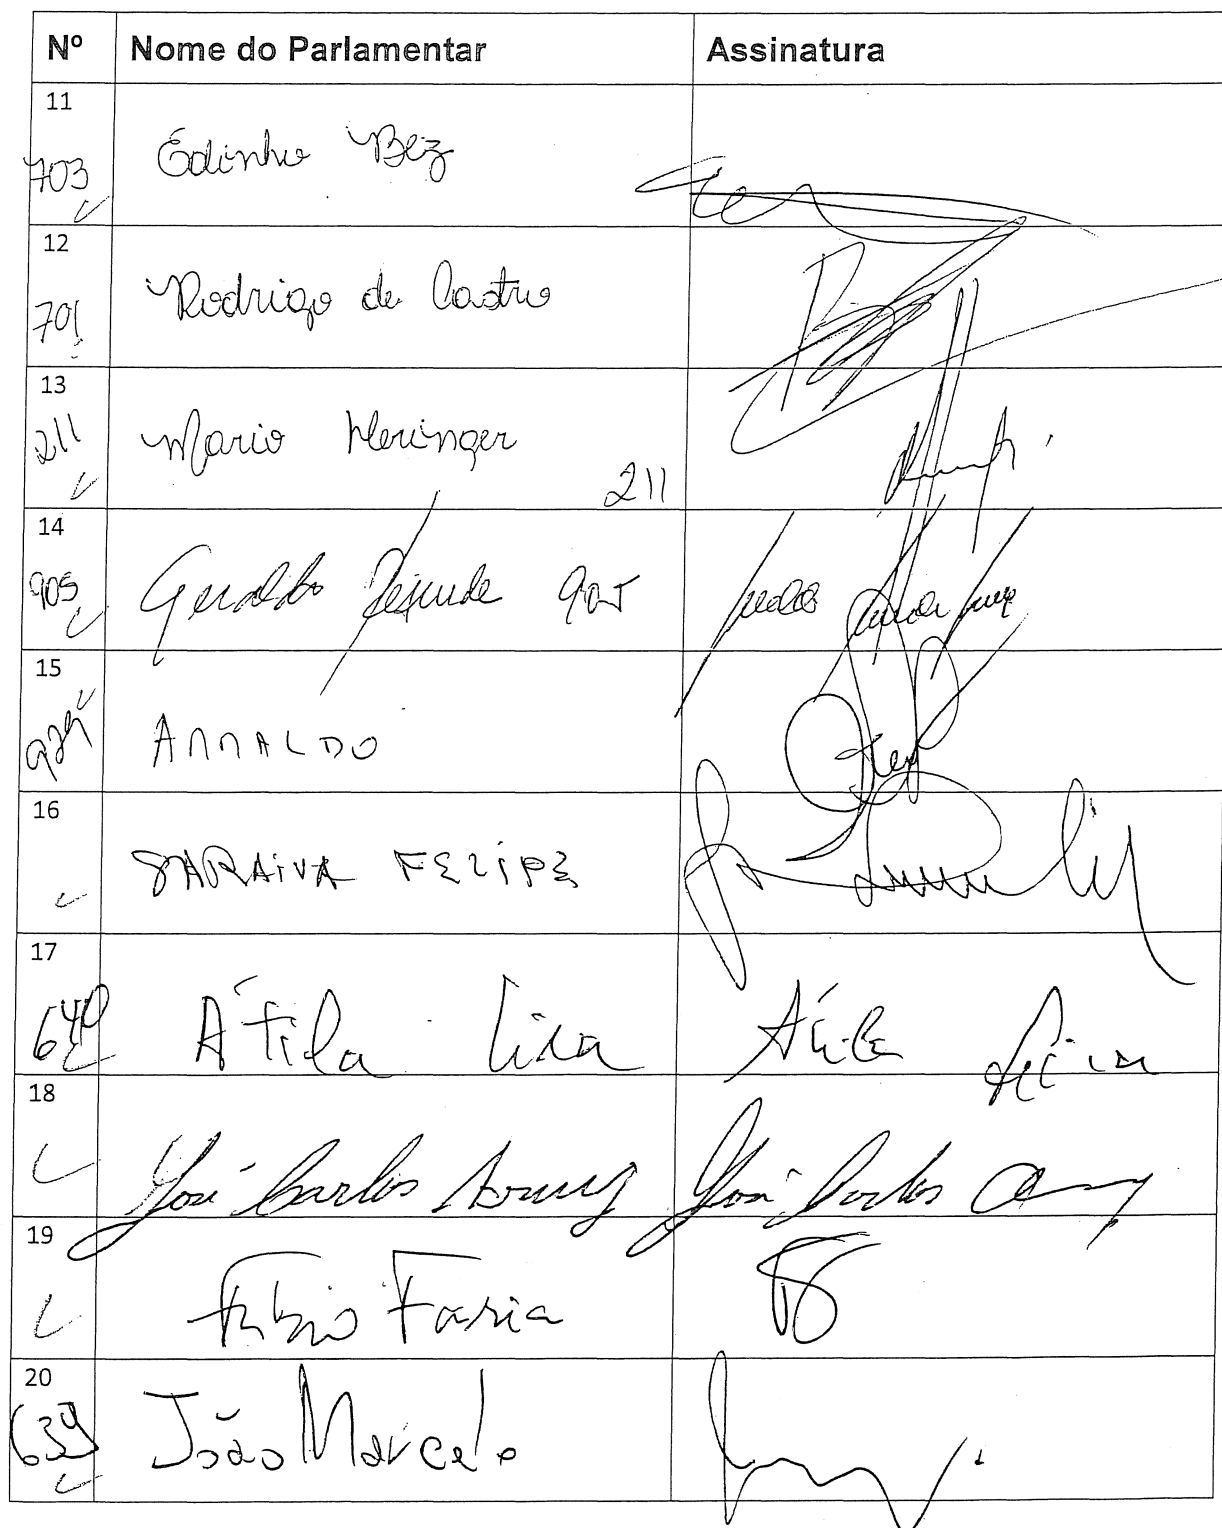 Nº Nome do Parlamentar Assinatura
11
703 Edinho Bez
12
701 Rodrigo de Castro
13
211 Mario Heringer
211
14
905 Geraldo Resende 905
15
929 ARNALDO
16
SARAIVA FELIPE
17
640 Átila Lira Átila Lira
18
José Carlos José Carlos
19
Fábio Faria
20
639 João Marcelo